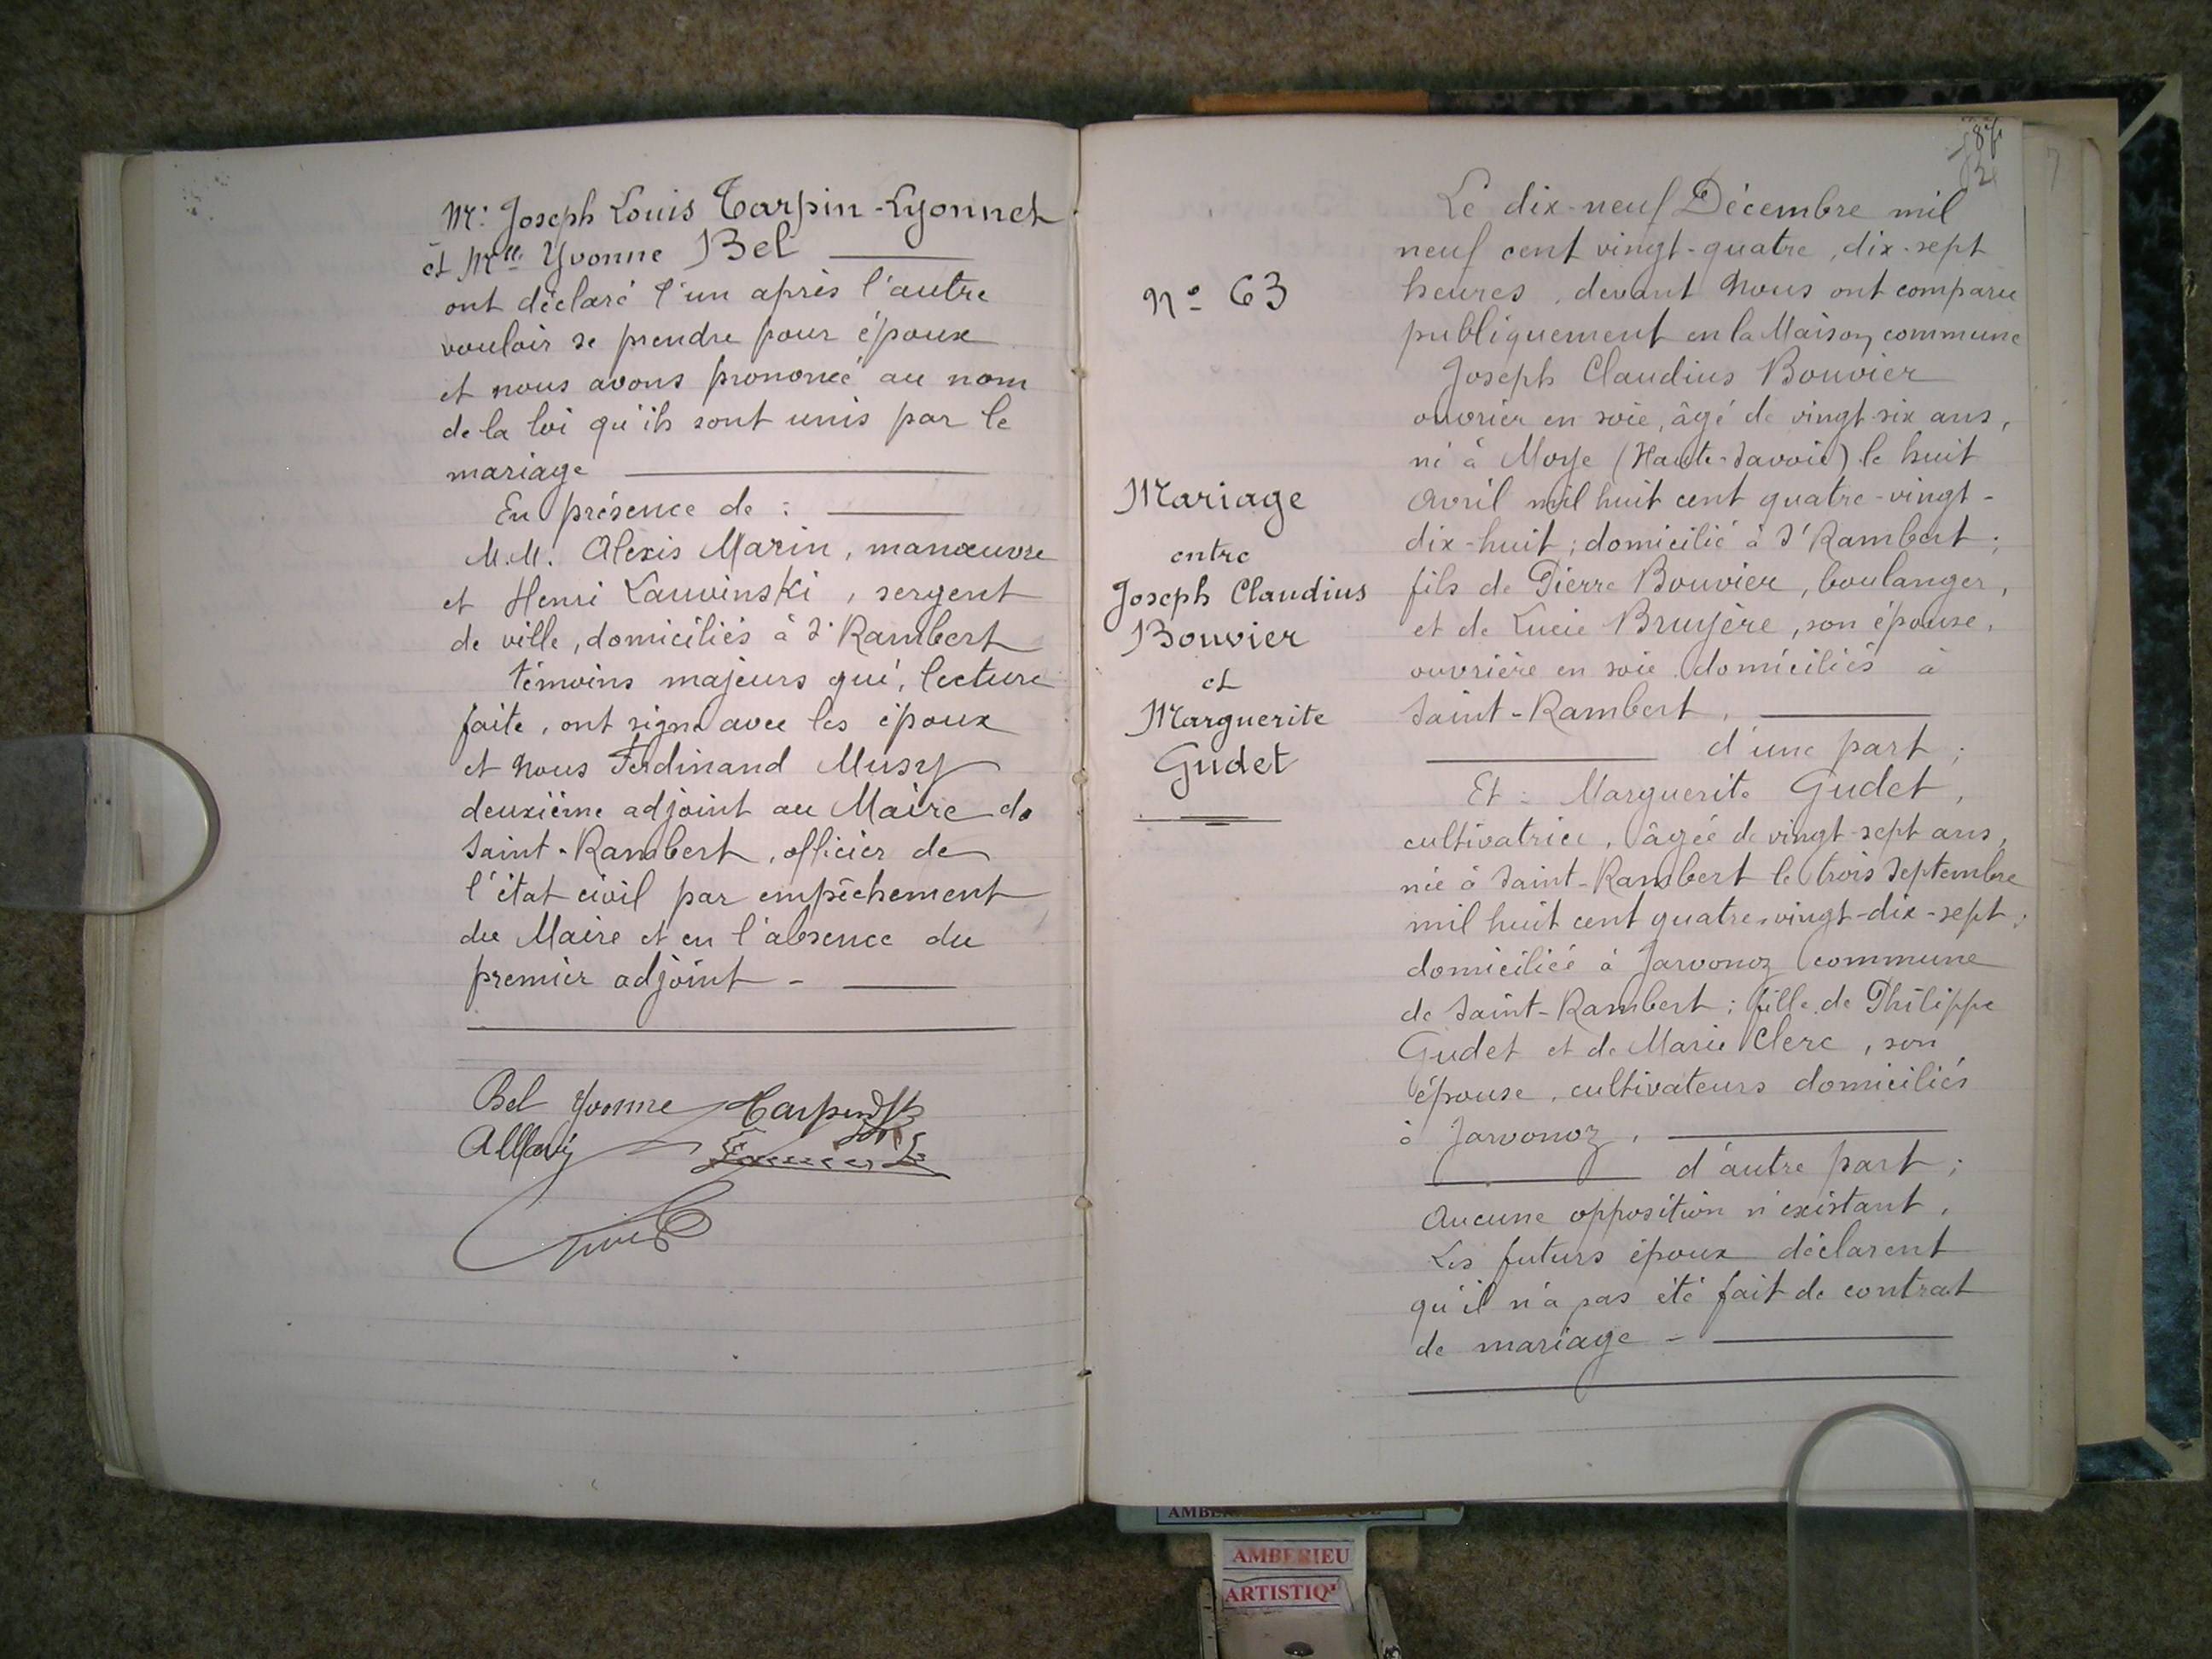 Mr. Joseph Louis Tarpin-Lyonnet
et Mlle Yvonne Bel
ont déclaré l'un après l'autre
vouloir se prendre pour époux
et nous avons prononcé au nom
de la loi qu'ils sont unis par le
mariage
En présence de :
M.M. Alexis Marin, manœuvre
et Henri Lauvinski, sergent
de ville, domiciliés à St Rambert
témoins majeurs qui, lecture
faite, ont signé avec les époux
et Nous Ferdinand Musy
deuxième adjoint au Maire de
Saint-Rambert, officier de
l'état civil par empêchement
du Maire et en l'absence du
premier adjoint -
Bel Yvonne
N° 63
Mariage
entre
Joseph Claudius
Bouvier
et
Marguerite
Gudet
Le dix-neuf Décembre mil
neuf cent vingt-quatre, dix-sept
heures, devant Nous ont comparu
publiquement en la Maison commune
Joseph Claudius Bouvier
ouvrier en soie, âgé de vingt-six ans,
né à Moye (Haute-Savoie) le huit
Avril mil huit cent quatre-vingt-
dix-huit ; domicilié à St Rambert ;
fils de Pierre Bouvier, boulanger,
et de Lucie Bruyère, son épouse,
ouvrière en soie domiciliés à
Saint-Rambert,
d'une part ;
Et : Marguerite Gudet,
cultivatrice, âgée de vingt-sept ans,
née à Saint-Rambert le trois Septembre
mil huit cent quatre-vingt-dix-sept ;
domiciliée à Javonoz commune
de Saint-Rambert ; fille de Philippe
Gudet et de Marie Clerc, son
épouse, cultivateurs domiciliés
à Javonoz,
d'autre part ;
Aucune opposition n'existant,
Les futurs époux déclarent
qu'il n'a pas été fait de contrat
de mariage -
AMBERIEU
ARTISTIQ